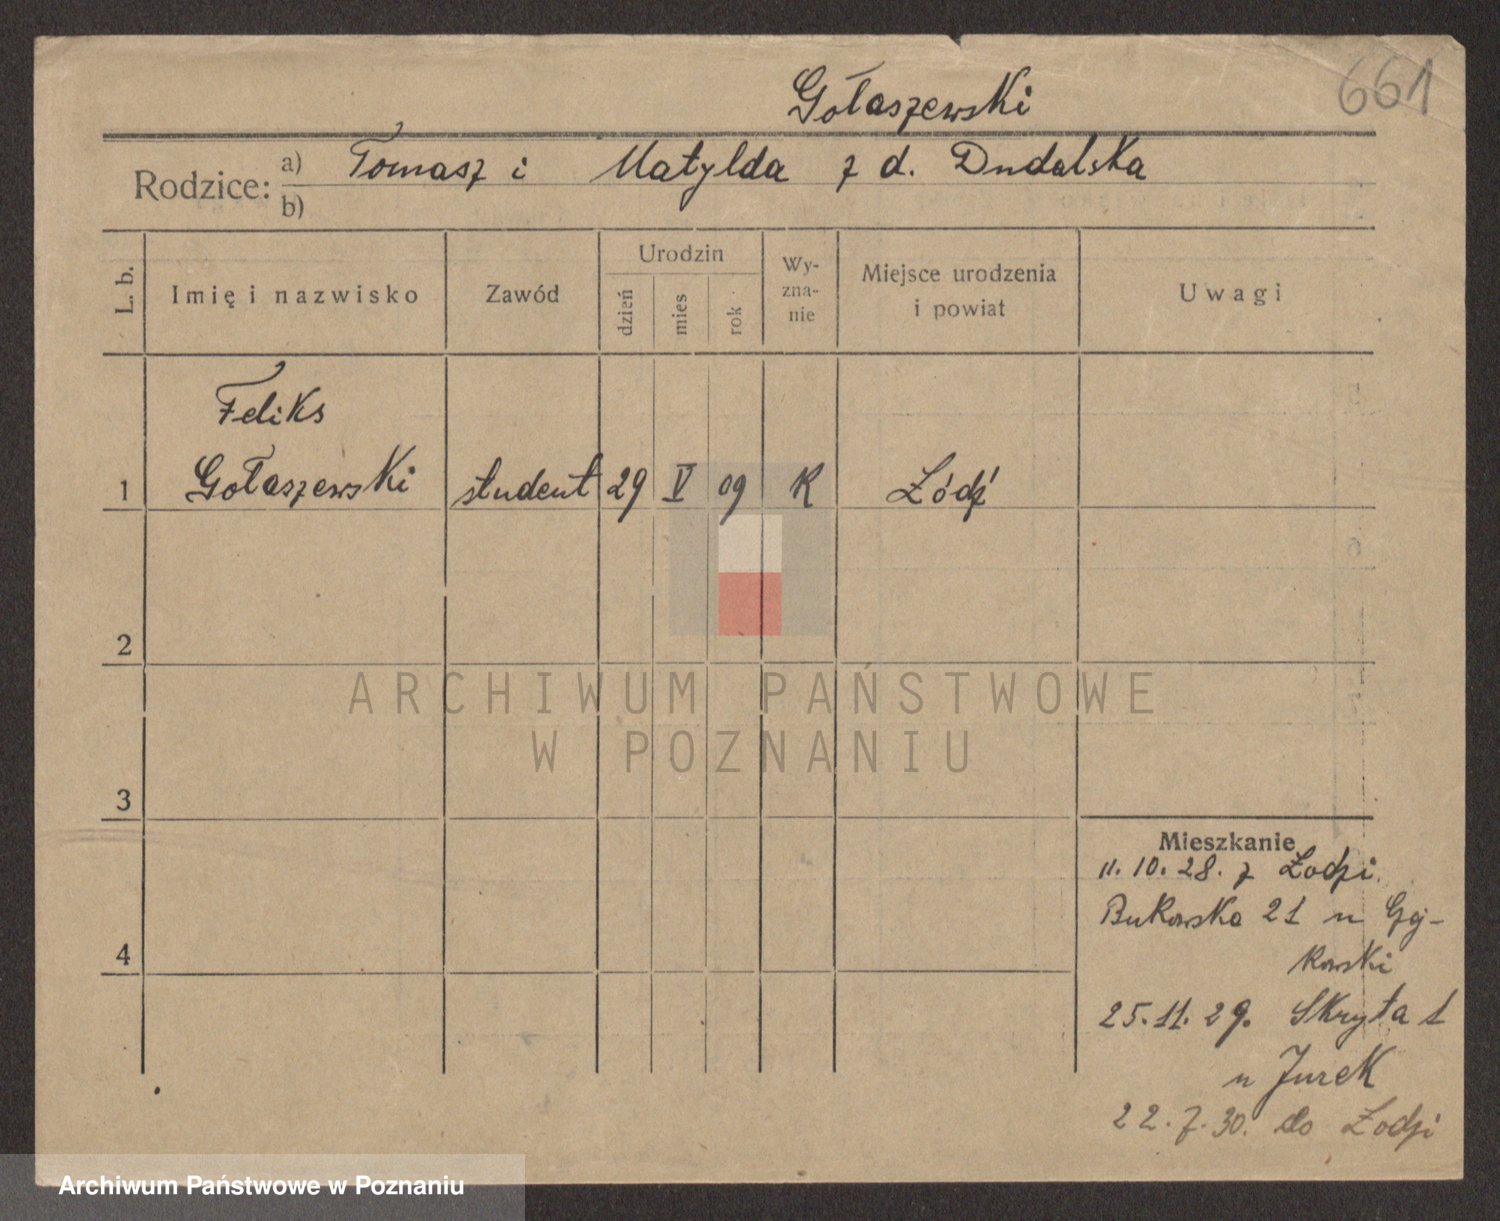 661
Gołaszewski
Rodzice: a) Tomasz i Matylda z d. Dudalska
b)
L. b. Imię i nazwisko Zawód Urodzin dzień mies rok Wy-zna-nie Miejsce urodzenia i powiat Uwagi
Feliks
1 Gołaszewski student 29 V 09 K Łódź
2
ARCHIWUM PAŃSTWOWE
W POZNANIU
3
4
Mieszkanie
11. 10. 28. z Łodzi.
Bukowska 21 u Gaj-
kowski
25. 11. 29. Skryta 1
u Jurek
22. 7. 30. do Łodzi
Archiwum Państwowe w Poznaniu